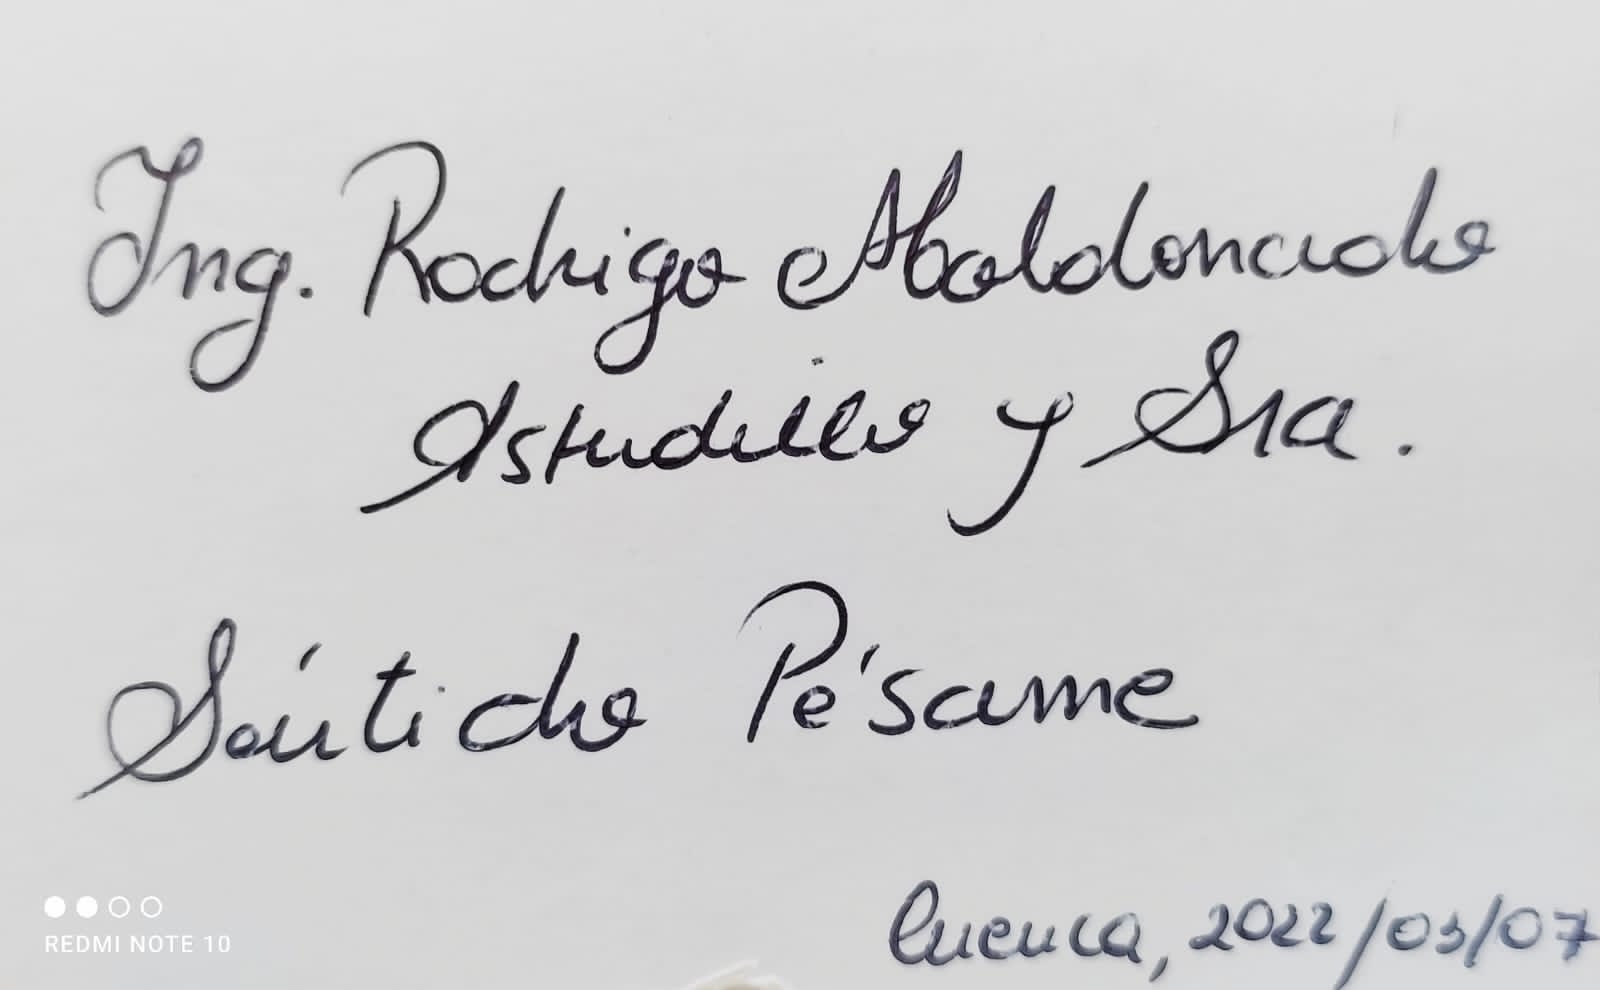 Ing. Rodrigo Maldonado
Astudillo y Sra.
Séntido Pésame
Cuenca, 2022/03/07
REDMI NOTE 10